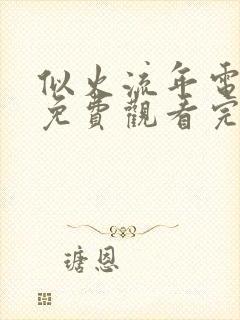 似火流年電
免費觀看完
瑭恩